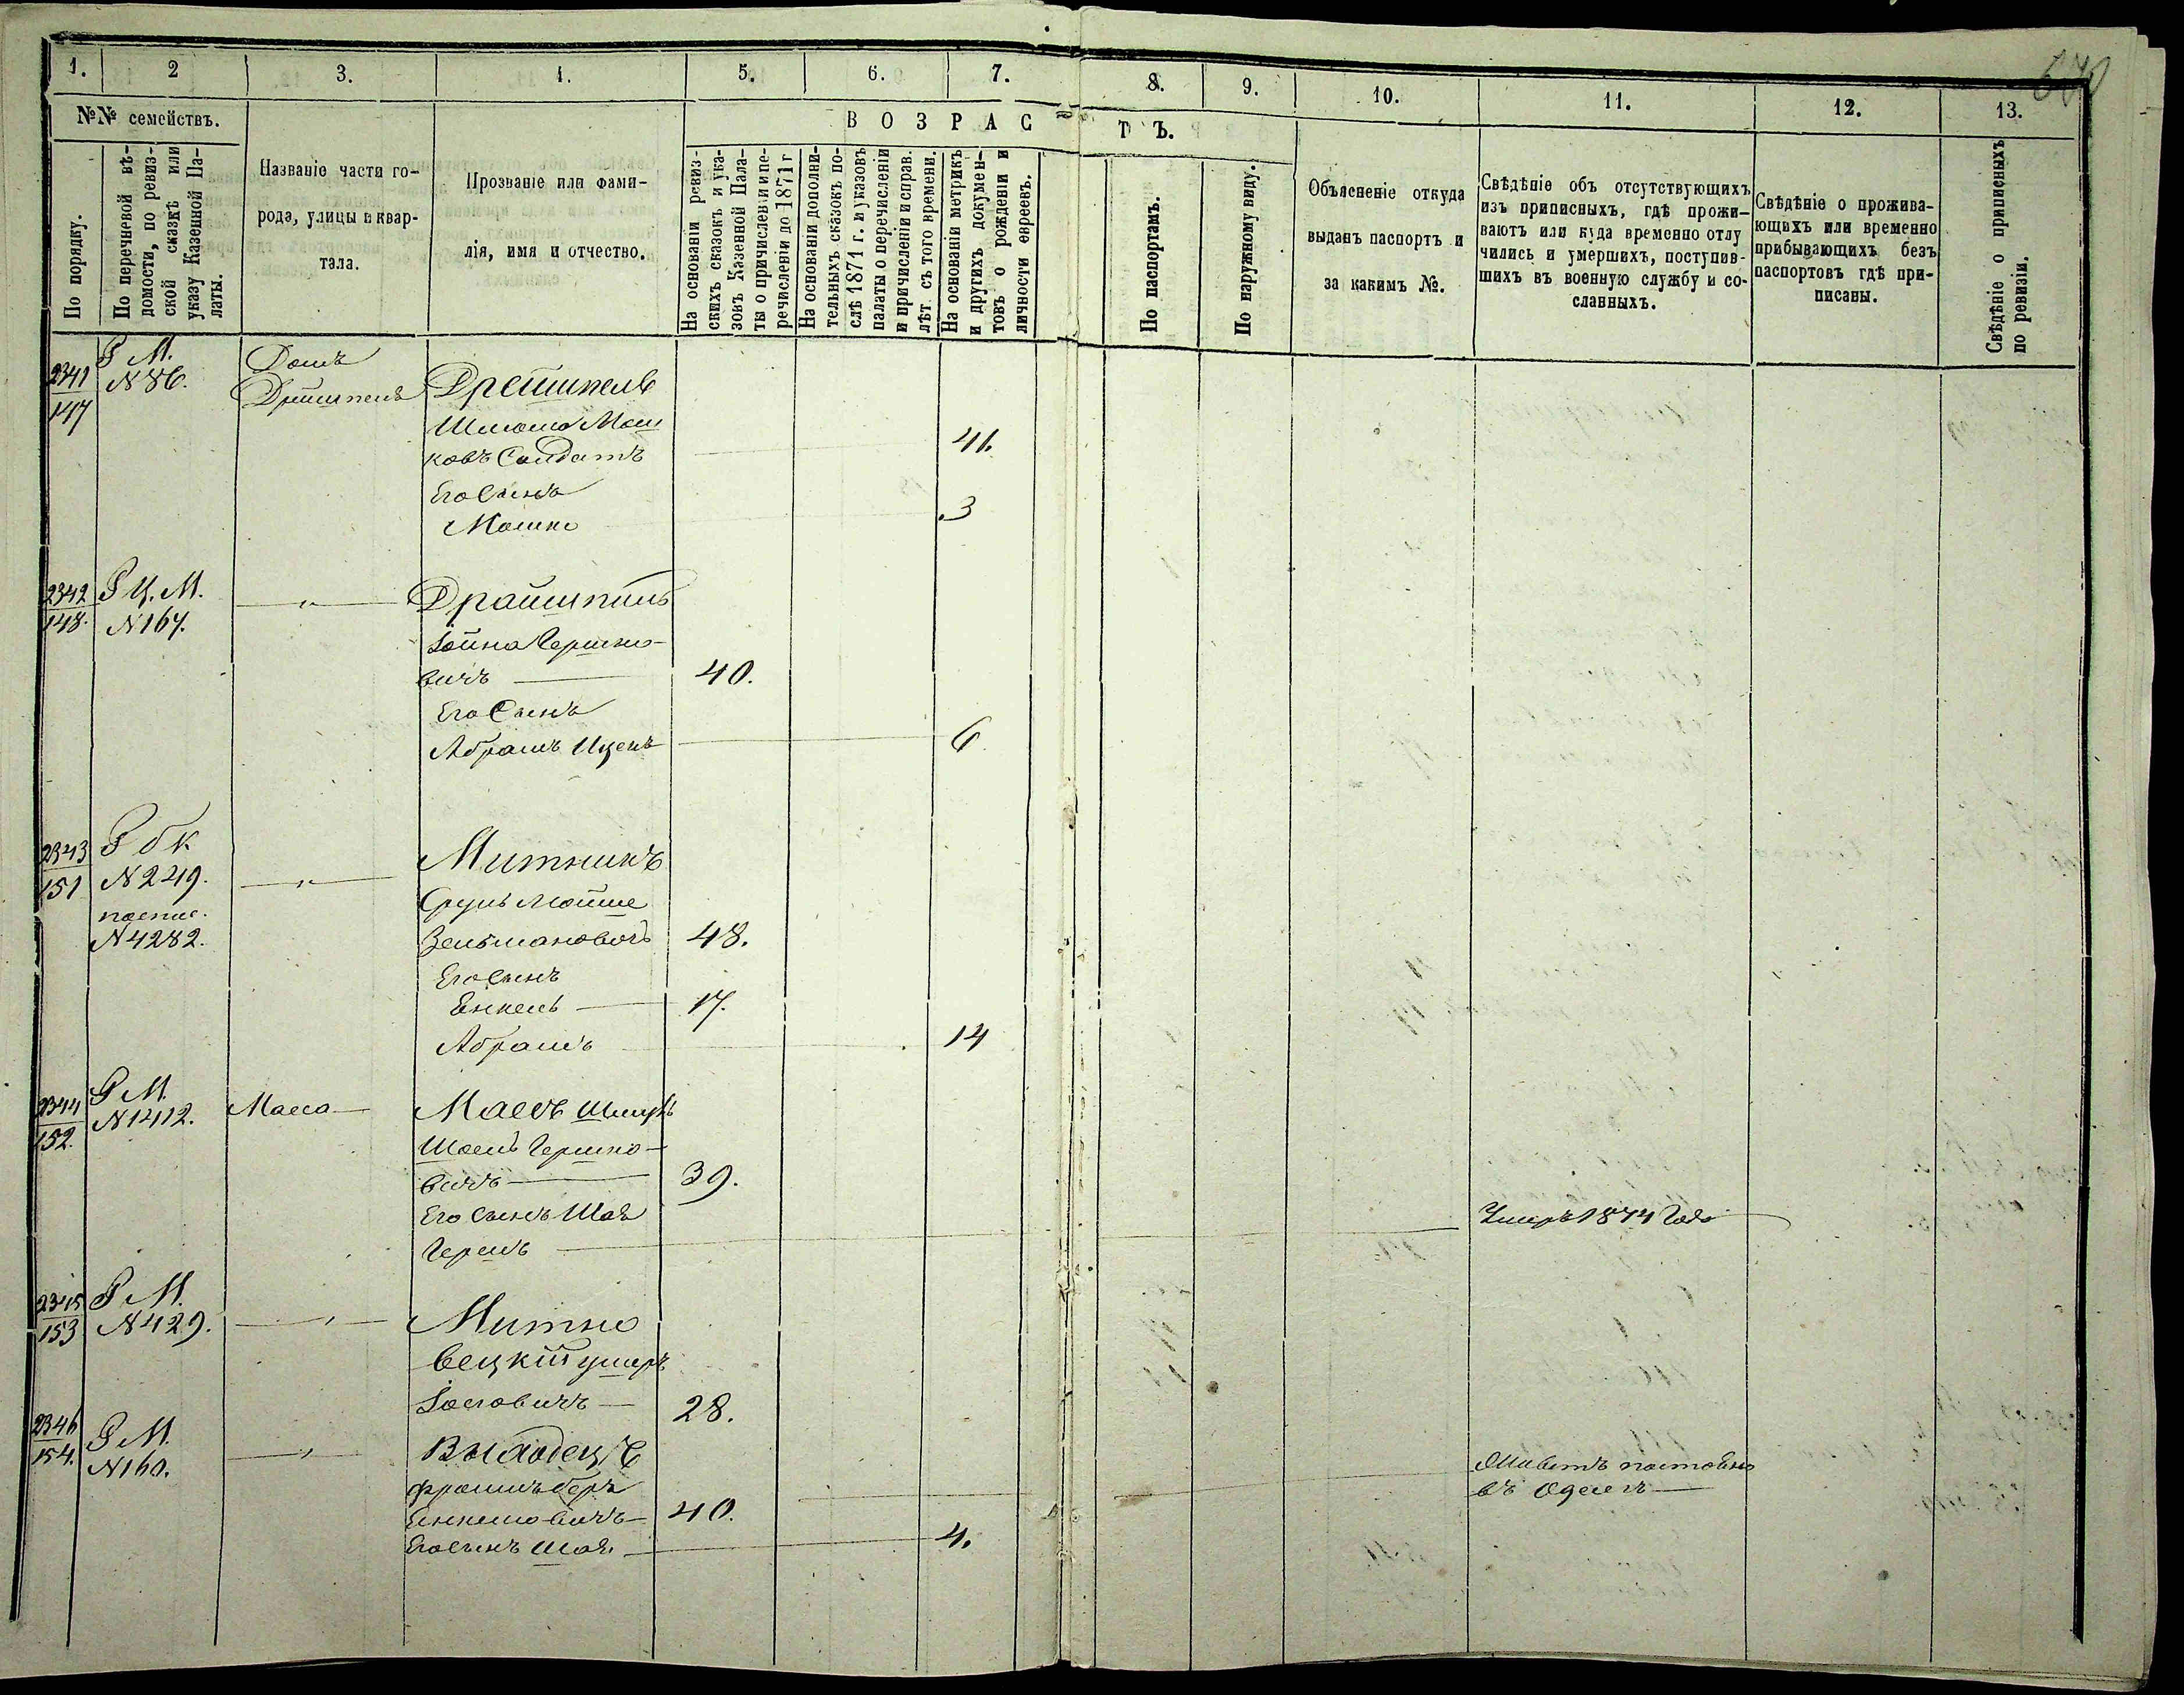 670
1. 2 3. 4. 5. 6. 7. 8. 9. 10. 11. 12. 13.
№№ семействъ.
По порядку.
По перечневой вѣ-
домости, по ревиз-
ской сказкѣ или
указу Казенной Па-
латы.
Названіе части го-
рода, улицы и квар-
тала.
Прозваніе или фами-
лія, имя и отчество.
ВОЗРАС
ТЪ.
На основаніи ревиз-
скихъ сказокъ и ука-
зовъ Казенной Пала-
ты о причисленіи и пе-
речисленіи до 1871 г
На основаніи дополни-
тельныхъ сказокъ по-
слѣ 1871 г. и указовъ
палаты о перечисленіи
и причисленіи и исправ.
лѣт съ того времени.
На основаніи метрикъ
и другихъ докумен-
товъ о рожденіи и
личности евреевъ.
По паспортамъ.
По наружному виду.
Объясненіе откуда
выданъ паспортъ и
за какимъ №.
Свѣдѣніе объ отсутствующихъ
изъ приписныхъ, гдѣ прожи-
ваютъ или куда временно отлу
чились и умершихъ, поступив-
шихъ въ военную службу и со-
сланныхъ.
Свѣдѣніе о прожива-
ющихъ или временно
прибывающихъ безъ
паспортовъ гдѣ при-
писаны.
Свѣдѣніе о приписныхъ
по ревизіи.
2341
147
Р М.
N 86.
Домъ
Дрешпель
Шлиома Мош
ковъ Солдатъ 41.
Его Сынъ
Мошко 3
2342
148.
Р Ц. М.
N 167.
"
Драйшпиль
Іойна Гершко-
вичъ 40.
Его Сынъ
Абрамъ Ицекъ 6
2343
151
Р б К
N 249.
N 4282.
"
Митникъ
Срулъ Мойше
Зельмановичъ 48.
Его Сынъ
Енкель 17.
Абрамъ 14
2344
152.
Р М.
N 1412.
Маега
Шоелъ Гершко-
вичъ 39.
Его Сынъ Шая
Гершъ Умеръ 1874 Года
2345
153
Р М.
N 429.
"
Митко
вецкій Ушеръ
Іосіовичъ 28.
2346
154.
Р М.
N 160.
"
Выходецъ
Фроимъ Беръ
Енкелиовичъ 40. Живетъ постоянно
въ Одессѣ
Его сынъ Шая. 4.